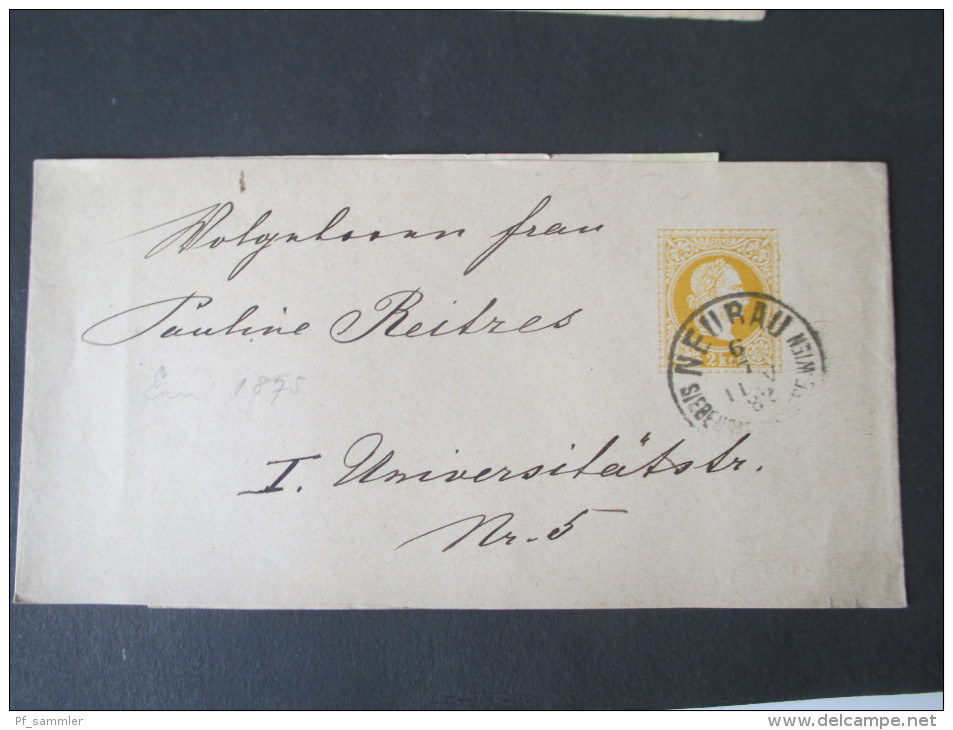 Wolgeboren frau
Pauline Reitzes
Em 1875
I. Universitätstr.
Nr. 5
2 Kr.
NEUBAU WIEN
6
7
82
11
Pf_sammler
www.delcampe.net